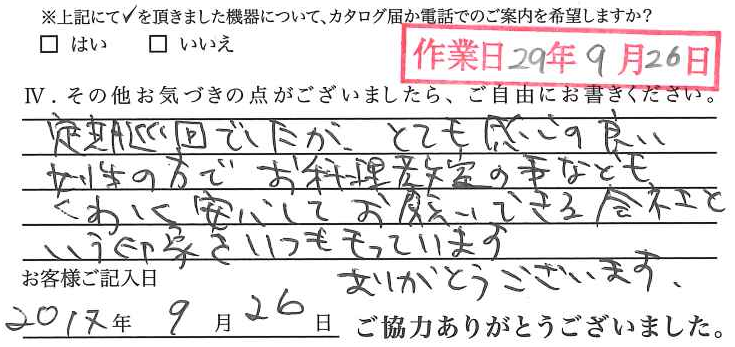 ※上記にて✓を頂きました機器について、カタログ届か電話でのご案内を希望しますか？
□ はい　□ いいえ
作業日29年9月26日
Ⅳ．その他お気づきの点がございましたら、ご自由にお書きください。
定期巡回でしたが、とても感じの良い
女性の方で お料理教室の事なども
くわしく安心してお願いできる会社と
いう印象をいつももっています
ありがとうございます．
お客様ご記入日
2017年 9月26日
ご協力ありがとうございました。